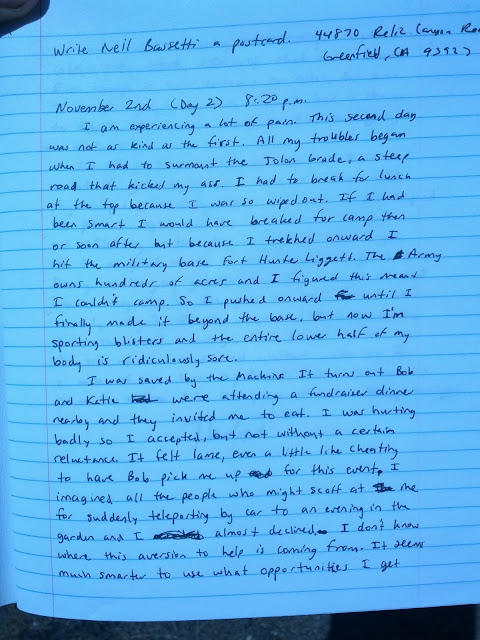 Write Neil Bassetti a postcard. 44870 Reliz Canyon Roa
Greenfield, CA 93927
November 2nd (Day 2) 8:20 p.m.
I am experiencing a lot of pain. This second day
was not as kind as the first. All my troubles began
when I had to surmount the Jolon Grade, a steep
road that kicked my ass. I had to break for lunch
at the top because I was so wiped out. If I had
been smart I would have breaked for camp then
or soon after but because I trekked onward I
hit the military base Fort Hunter Liggett. The Army
owns hundreds of acres and I figured this meant
I couldn't camp. So I pushed onward until I
finally made it beyond the base, but now I'm
sporting blisters and the entire lower half of my
body is ridiculously sore.
I was saved by the Machine. It turns out Bob
and Katie were attending a fundraiser dinner
nearby and they invited me to eat. I was hurting
badly so I accepted, but not without a certain
reluctance. It felt lame, even a little like cheating
to have Bob pick me up for this event. I
imagined all the people who might scoff at me
for suddenly teleporting by car to an evening in the
garden and I almost declined. I don't know
where this aversion to help is coming from. It seems
much smarter to use what opportunities I get